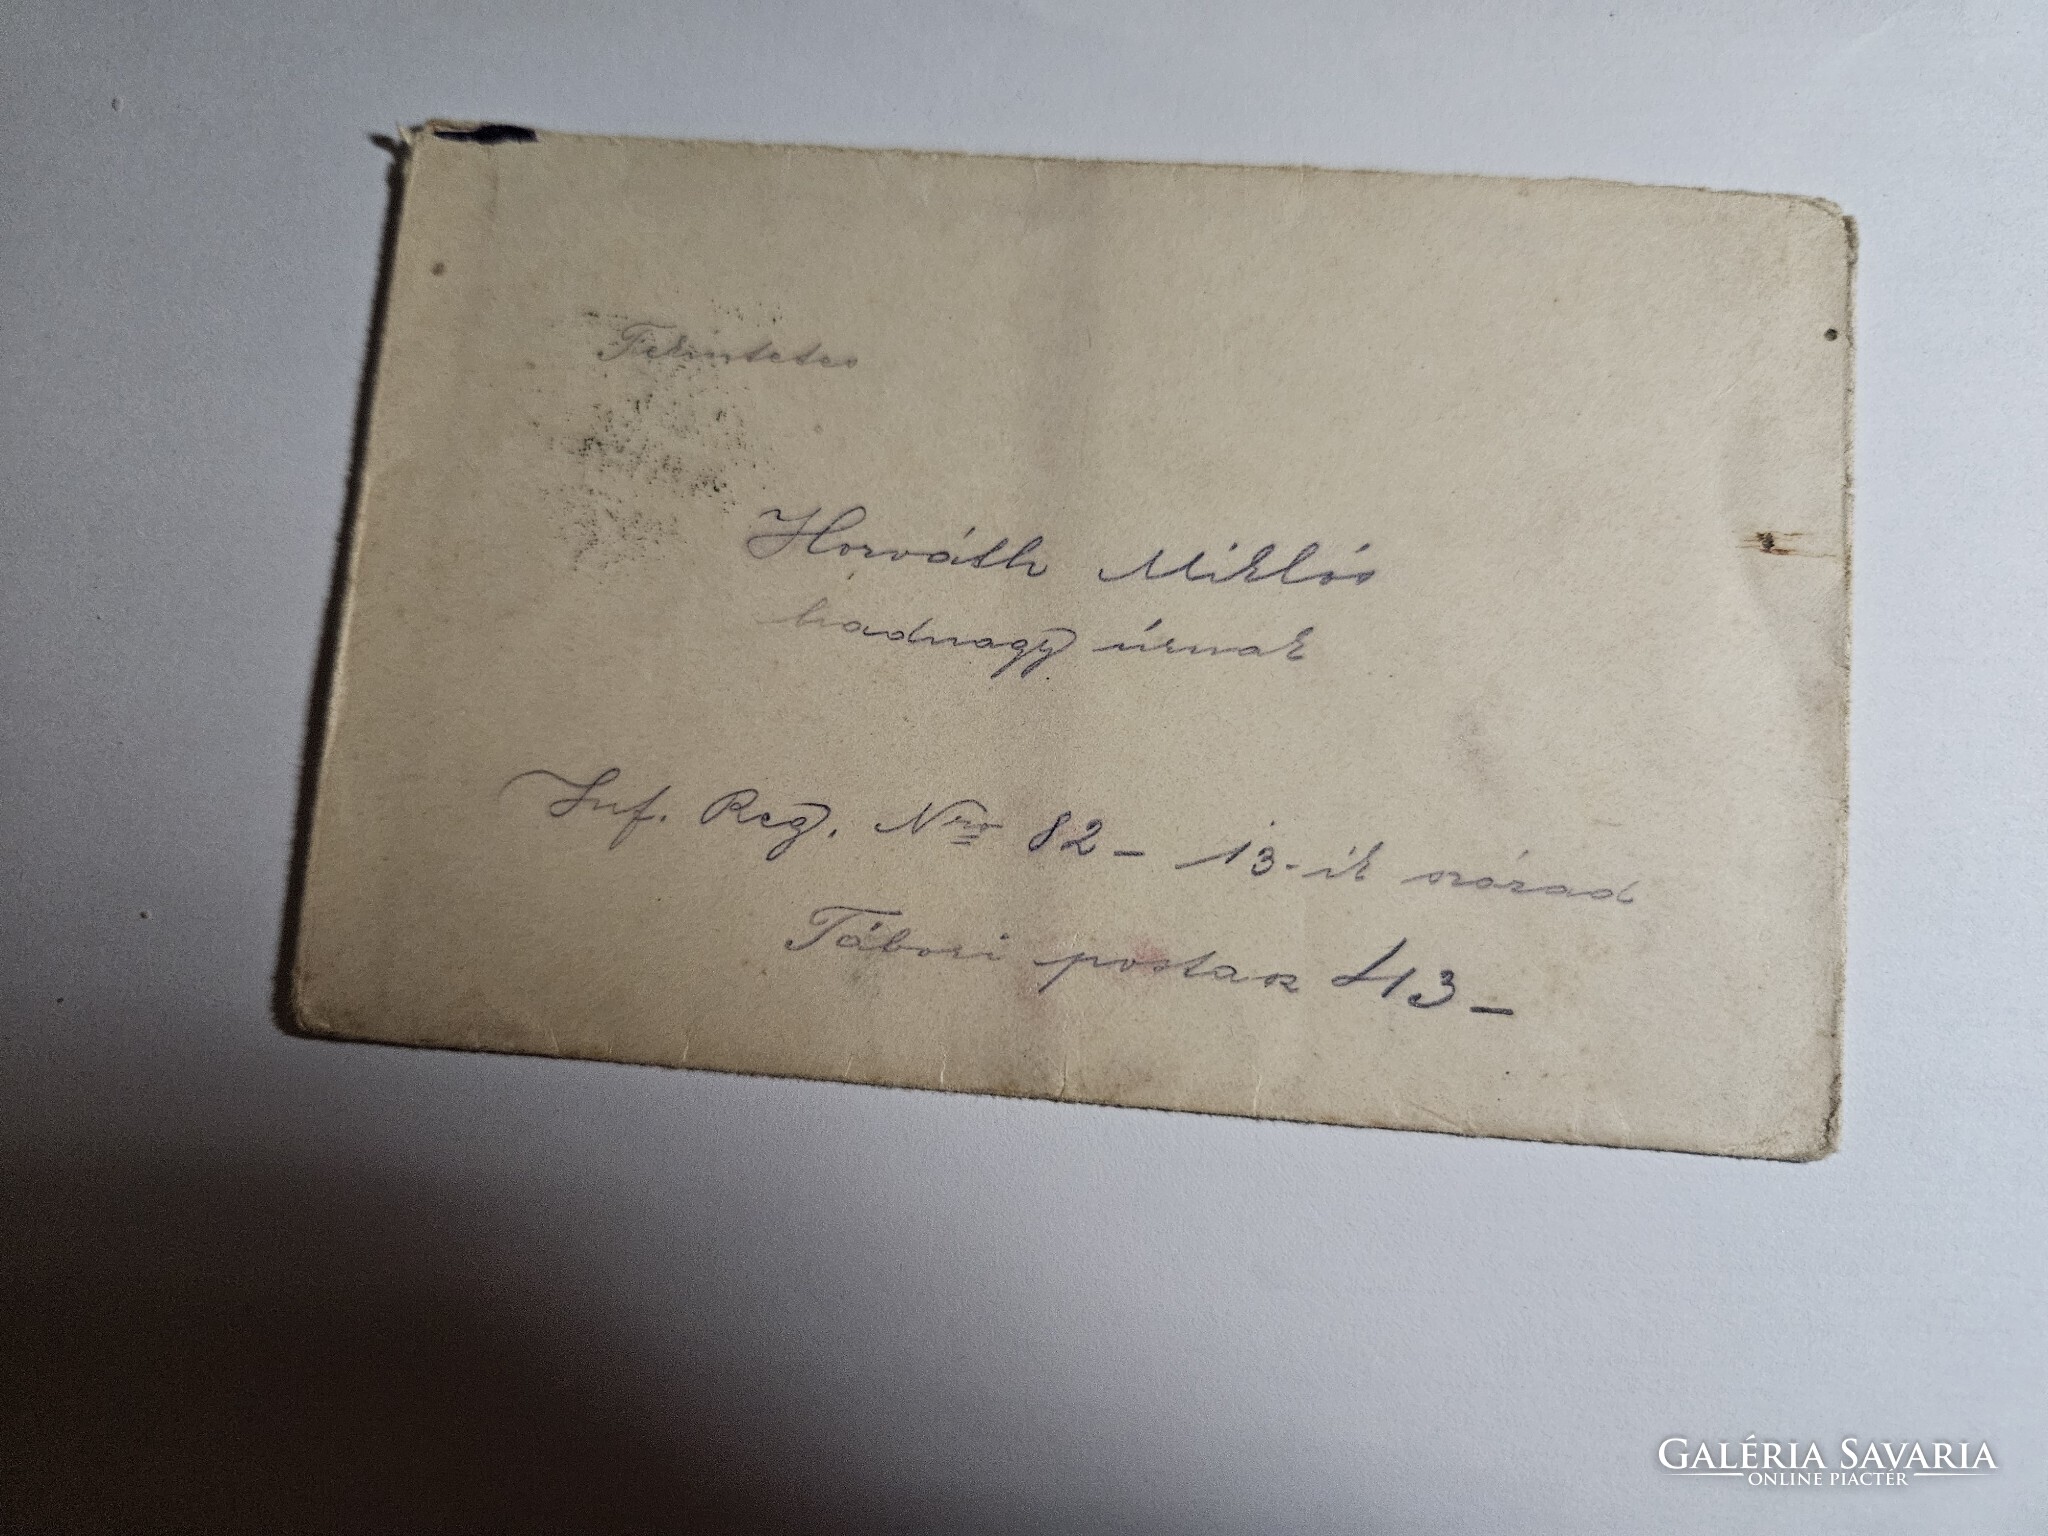 Tekintetes
Horváth Miklós
hadnagy úrnak
Inf. Reg. Nro 82 – 13-ik század
Tábori posta 413 –
GALÉRIA SAVARIA
ONLINE PIACTÉR